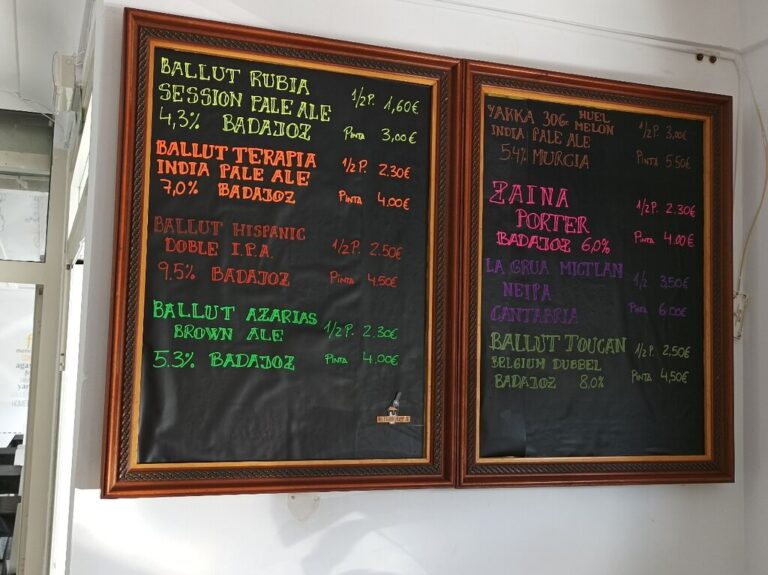 BALLUT RUBIA
SESSION PALE ALE 1/2 P. 1,60€
4,3% BADAJOZ PINTA 3,00€
BALLUT TERAPIA
INDIA PALE ALE 1/2 P. 2.30€
7,0% BADAJOZ PINTA 4.00€
BALLUT HISPANIC
DOBLE I.P.A. 1/2 P. 2.50€
9.5% BADAJOZ PINTA 4,50€
BALLUT AZARIAS
BROWN ALE 1/2 P. 2.30€
5.3% BADAJOZ PINTA 4.00€
YAKKA 30Gr HUEL MELON 1/2 P. 3,00€
INDIA PALE ALE
5.4% MURGIA PINTA 5.50€
ZAINA 1/2 P. 2.30€
PORTER
BADAJOZ 6,0% PINTA 4.00€
LA GRUA MICTLAN 1/2 3,50€
NEIPA
CANTABRIA PINTA 6.00€
BALLUT TOUCAN 1/2 P. 2,50€
BELGIUM DUBBEL
BADAJOZ 8,0% PINTA 4,50€